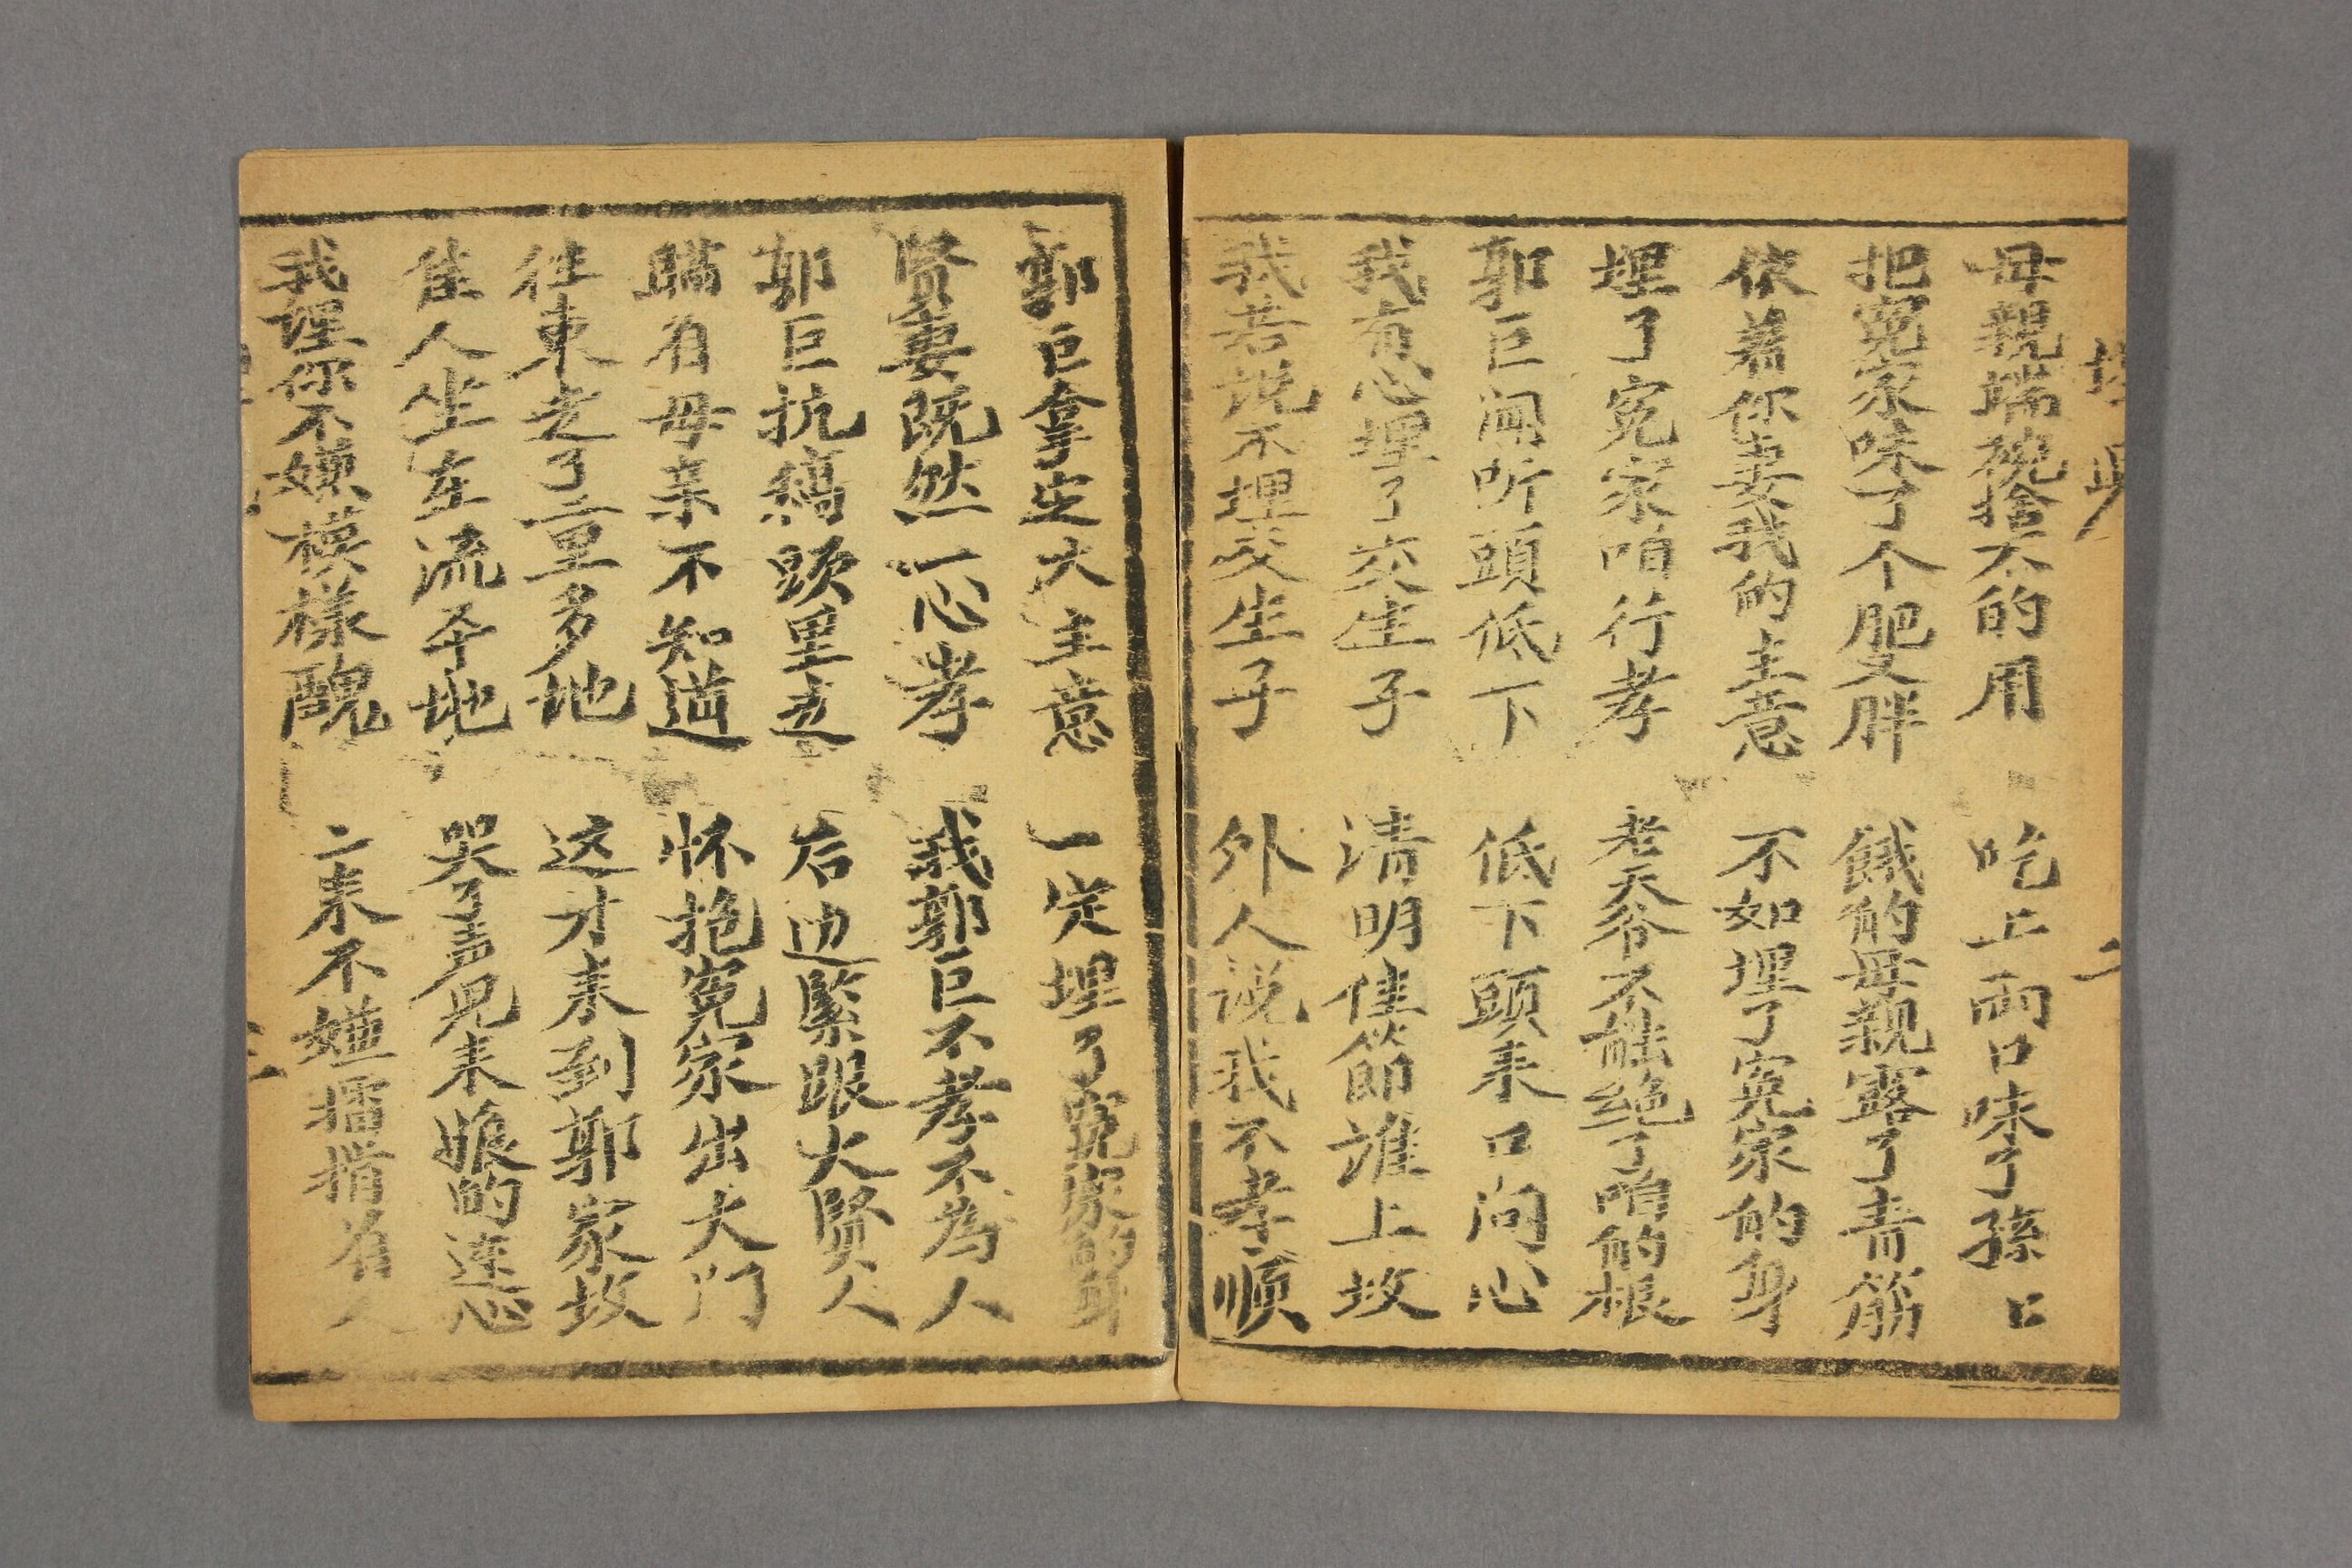 母親端碗捨不的用　吃上兩口味了孫口
把冤家味了个肥又胖　餓的母親露了青筋
依着你妻我的主意　不如埋了冤家的身
埋了冤家咱行孝　老天爷不能绝了咱的根
郭巨闻听頭低下　低下頭来口问心
我有心埋了交生子　清明佳節誰上坟
我若说不埋交生子　外人说我不孝順
郭巨拿定大主意　一定埋了冤家的身
贤妻既然一心孝　我郭巨不孝不為人
郭巨抗稿頭里走　后边緊跟大賢人
瞒着母亲不知道　怀抱冤家出大门
往東走了二里多地　这才来到郭家坟
佳人坐在流平地　哭了声兒来娘的连心
我埋你不嫌模樣醜　二来不嫌